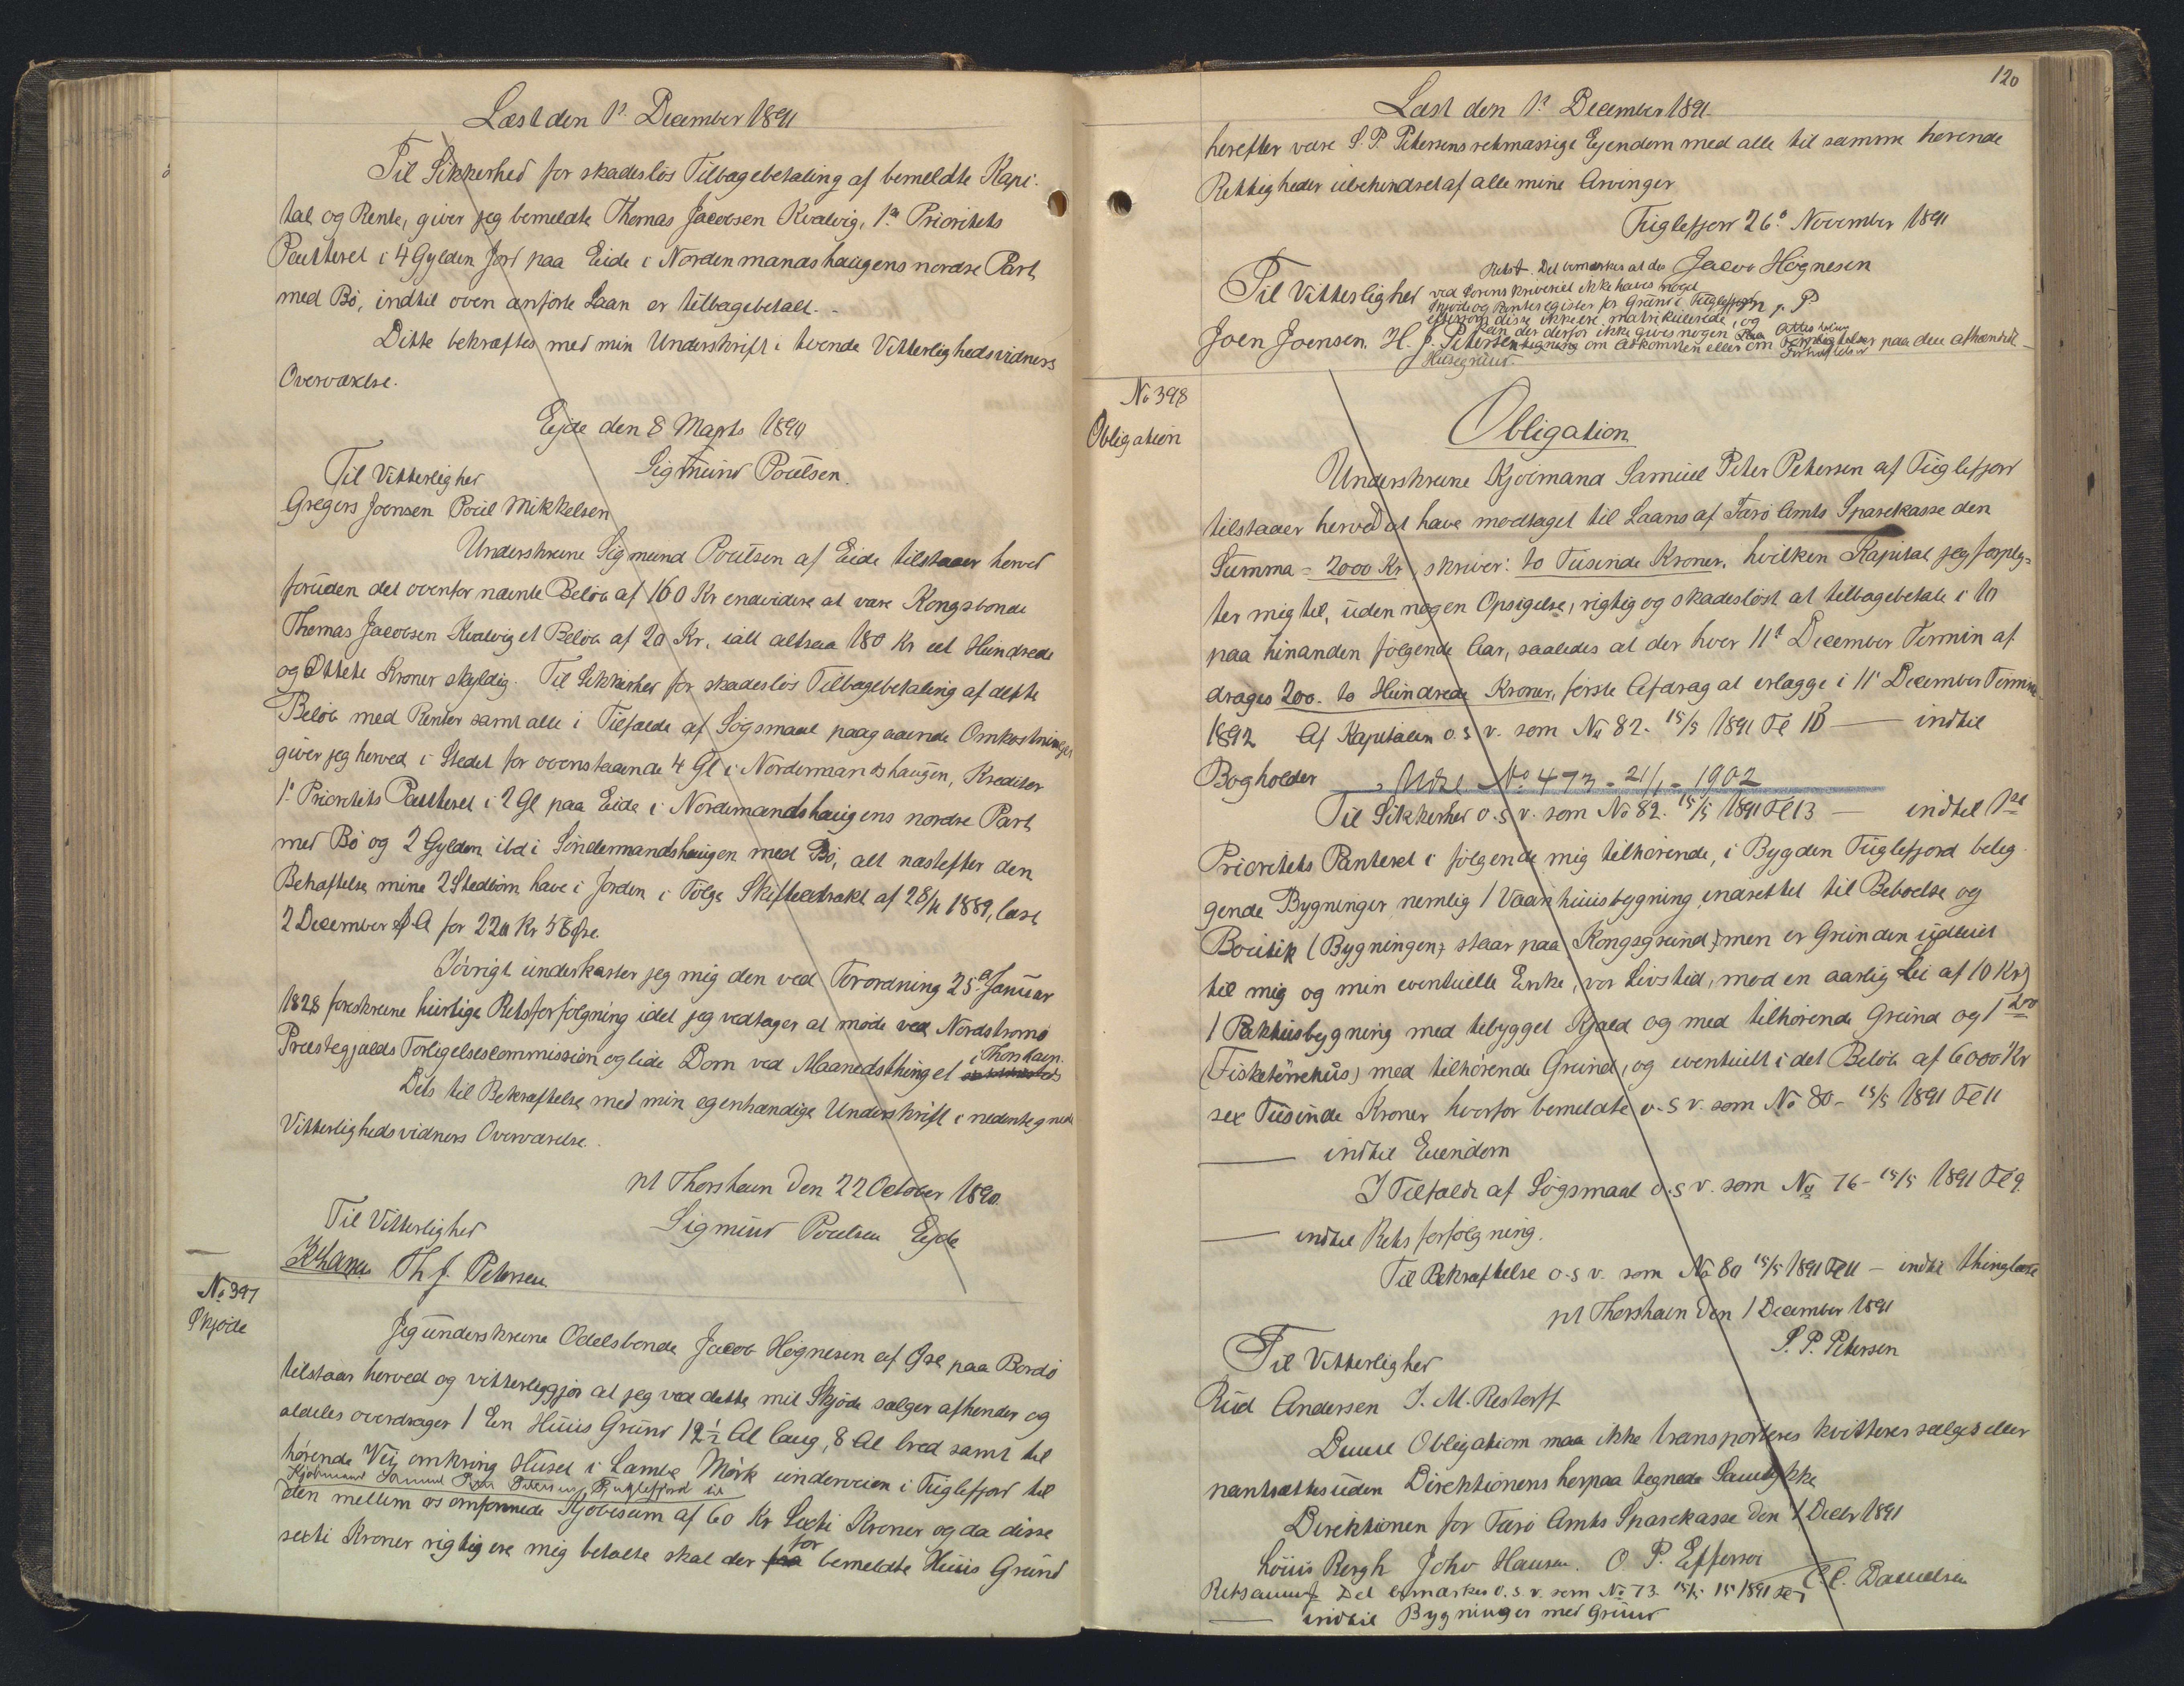 Læst den 1ª December 1891
Til Sikkerhed for skadesløs Tilbagebetaling af bemeldte Kapi-
tal og Rente, giver jeg bemeldte Thomas Jacobsen Kvalvig, 1ª Prioritets
Panteret i 4 Gylden Jord paa Eide i Nordenmandshaugens nordre Part
med Bø, indtil oven anførte Laan er tilbagebetalt.
Dette bekræftes med min Underskrift i tvende Vitterlighedsvidners
Overværelse.
Ejde den 8 Marts 1890
Til Vitterlighed Sigmund Poulsen.
Gregers Joensen Poul Mikkelsen
Underskrevne Sigmund Poulsen af Eide tilstaaer herved
foruden det ovenfor nævnte Beløb af 160 Kr endvidere at være Kongsbonde
Thomas Jacobsen Kvalvig et Beløb af 20 Kr. ialt altsaa 180 Kr et Hundrede
og Ottete Kroner skyldig. Til Sikkerhed for skadesløs Tilbagebetaling af dette
Beløb med Renter samt alle i Tilfælde af Søgsmaal paagaaende Omkostninger
giver jeg herved i Stedet for ovenstaaende 4 Gl i Nordenmandshaugen, Kreditor
1ª Prioritets Panteret i 2 Gl paa Eide i Nordenmandshaugens nordre Part
med Bø og 2 Gylden ibd i Søndermandshaugen med Bø, alt næstefter den
Behæftelse mine 2 Stedbørn have i Jorden i Følge Skifteextrakt af 28/11 1889, læst
2 December s A for 220 Kr 58 Øre.
Iøvrigt underkaster jeg mig den ved Forordning 25ª Januar
1828 foreskrevne hurtige Retsforfølgning idet jeg vedtager at møde ved Nordstrømø
Præstegjælds Forligelsescommission og lide Dom ved Maanedsthinget i Thorshavn.
Dets til Bekræftelse med min egenhændige Underskrift i nedentegnede
Vitterlighedsvidners Overværelse.
pt Thorshavn den 22 October 1890.
Til Vitterlighed Sigmund Poulsen Ejde
Th J. Petersen
No 397
Skjøde
Jeg underskrevne Odelsbonde Jacob Høgnesen af Øre paa Bordø
tilstaar herved og vitterliggjør at jeg ved dette mit Skjøde sælger afhender og
aldeles overdrager 1 Een Huus Grund 12½ Al lang, 8 Al bred samt til
hørende Vej omkring Huset i Lambe Mørk underveien i Fuglefjord til
Kjøbmand Samuel Peter Petersen, Fuglefjord til
den mellem os omforenede Kjøbesum af 60 Kr Sexti Kroner og da disse
sexti Kroner rigtig ere mig betalte skal der for bemeldte Huus Grund
120
Læst den 1ª December 1891.
herefter være S. P. Petersens retmæssige Ejendom med alle til samme hørende
Rettigheder ubehindret af alle mine Arvinger
Fuglefjord 26ª November 1891
Jacob Høgnesen
Til Vitterlighed
Retst. Det bemærkes at da
ved Sorenskriveriet ikke haves noget
Skjøde og Panteregister for Grund i Fuglefjord
eftersom disse ikke ere matrikulerede, og
kan der derfor ikke gives nogen Attestation
om Adkomsten eller om Forhæftelser paa den afhændede
Husegrund.
Joen Joensen. H. J. Petersen
No 398
Obligation
Obligation
Underskrevne Kjøbmand Samuel Peter Petersen af Fuglefjord
tilstaaer herved at have modtaget til Laans af Færø Amts Sparekasse den
Summa = 2000 Kr skriver: to Tusinde Kroner, hvilken Kapital jeg forplig-
ter mig til, uden nogen Opsigelse, rigtig og skadesløst at tilbagebetale i 10
paa hinanden følgende Aar, saaledes at der hver 11ª December Termin af
drages 200. to Hundrede Kroner, første Afdrag at erlægge i 11ª December Termin
1892 Af Kapitalen o. s v. som No 82. 15/5 1891 Fl 13 — indtil
Bogholder Udsl. No 473 - 21/1 - 1902
Til Sikkerhed o. s v. som No 82. 15/5 1891 Fl 13 — indtil 1ste
Prioritets Panteret i følgende mig tilhørende, i Bygden Fuglefjord beleg-
gende Bygninger nemlig 1 Vaaningshuusbygning indrettet til Beboelse og
Boutik (Bygningen staar paa Kongsgrund, men er Grunden udleiet
til mig og min eventuelle Enke, vor Livstid, mod en aarlig Lei af 10 Kr)
1 Pakhusbygning med tilbygget Kjald og med tilhørende Grund og 1
(Fisketørrehus) med tilhørende Grund, og eventuelt i det Beløb af 6000 Kr
sex Tusinde Kroner hvorfor bemeldte o. s v. som No 80 - 15/5 1891 Fl 11
— indtil Eiendom
I Tilfælde af Søgsmaal o. s v. som No 76 - 15/5 1891 Fl 9.
— indtil Retsforfølgning.
Til Bekræftelse o. s v. som No 80 15/5 1891 Fl 11 — indtil thinglæse
pt Thorshavn den 1 December 1891
S. P. Petersen
Til Vitterlighed
Rud Andersen J. M. Restorff
Denne Obligation maa ikke transporteres kvitteres sælges eller
pantsættes uden Direktionens herpaa tegnede Samtykke
Direktionen for Færø Amts Sparekasse den 1 Decbr 1891
Louis Bergh John Hansen. O. P. Effersøe C. C. Danielsen
Retsanm. Det bemærkes o. s. v. som No 73 15/5 1891
— indtil Bygninger med Grund